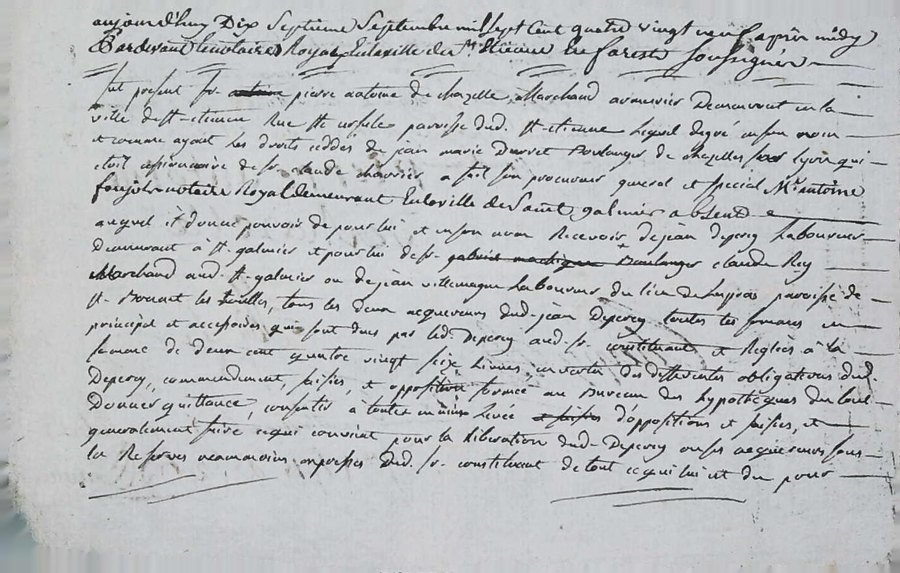 aujourd'huy Dix Septieme Septembre mil sept Cent quatre vingt neuf aprés midy
Pardevant le notaire Royal En la ville de St. Etienne En forest Soussignér
fut present Sr. antoine pierre antoine de chazelle Marchand armurier Demeurant en la
ville de St. etienne Rue Ste ursule paroisse dud. St. etienne lequel degré en son nom
et comme ayant les droits cedés de jean marie Boulanger de chazelles sur lyon qui
etoit de Sr. claude chavrier a fait son procureur general et special Mr. antoine
notaire Royal demeurant En la ville de Saint galmier absend
auquel il donne pouvoir de pour lui et en son nom Recevoir de jean deperey Laboureur
demeurant à St. galmier et pour lui de Sr. Boulanger claude Rey
Marchand aud. St. galmier ou de jean villemagne Laboureur du lieu de paroisse de
St. Bonnet les oules, tous les deux acquereurs dud. jean Deperey toutes les sommes en
principal et accessoires qui sont dues par led. Deperey aud. Sr. constituant et Reglés à la
somme de deux cent quatre vingt seize livres, en vertu des differentes obligations dud.
Deperey, commandement, saisies, et opposition formée au Bureau des hypotheques du tout
Donner quittance, consentir à toutes main levée et saisies d'oppositions et saisies, et
generalement faire ce qui convient pour la liberation dud. Deperey ou ses acquereurs sous
les Reserves neammoins expresses dud. Sr. constituant de tout ce qui lui est du pour